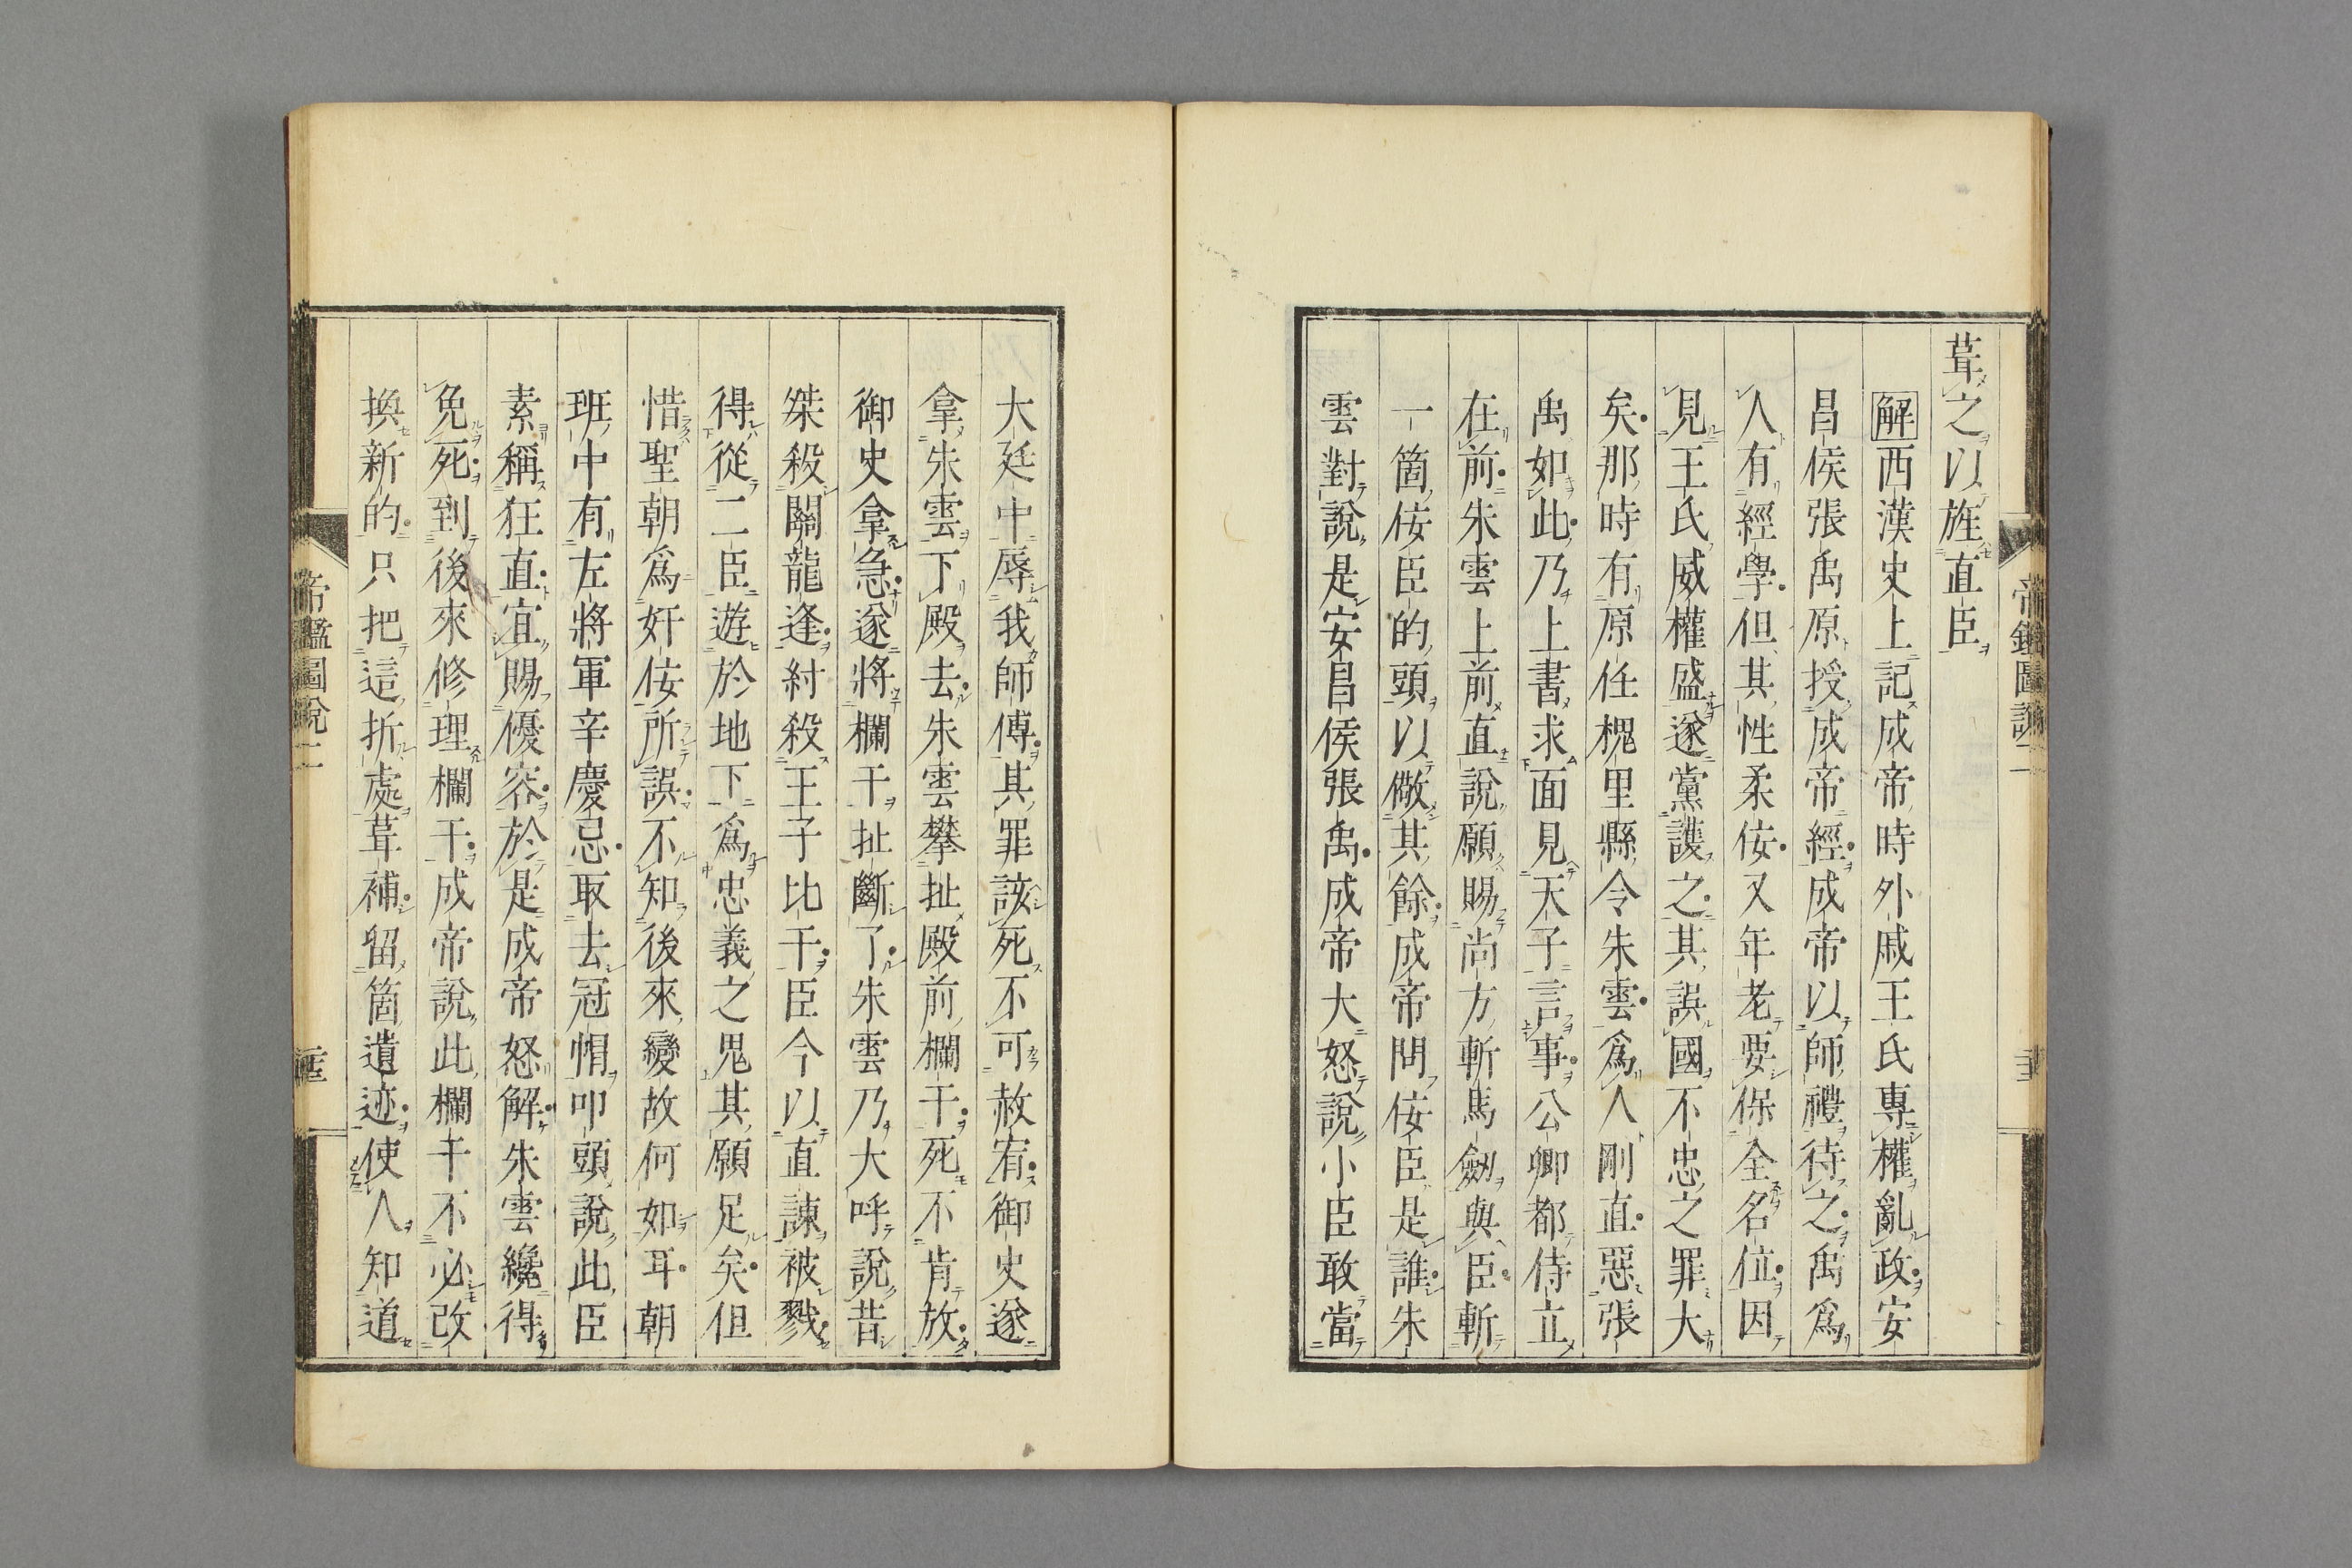 葺之以旌直臣
解西漢史上記成帝時外戚王氏專權亂政安
昌侯張禹原授成帝經成帝以師禮待之禹爲
人有經學但其性柔佞又年老要保全名位因
見王氏威權盛遂黨護之其誤國不忠之罪大
矣那時有原任槐里縣令朱雲爲人剛直惡張
禹如此乃上書求面見天子言事公卿都侍立
在前朱雲上前直說願賜尚方斬馬劔與臣斬
一箇佞臣的頭以儆其餘成帝問佞臣是誰朱
雲對說是安昌侯張禹成帝大怒說小臣敢當
帝鑑圖說
大廷中辱我師傅其罪該死不可赦宥御史遂
拿朱雲下殿去朱雲攀扯殿前欄干死不肯放
御史拿急遂將欄干扯斷了朱雲乃大呼說昔
桀殺關龍逄紂殺王子比干臣今以直諫被戮
得從二臣遊於地下爲忠義之鬼其願足矣但
惜聖朝爲奸佞所誤不知後來變故何如耳朝
班中有左將軍辛慶忌取去冠帽叩頭說此臣
素稱狂直宜賜優容於是成帝怒解朱雲纔得
免死到後來修理欄干成帝說此欄干不必改
換新的只把這折處葺補留箇遺迹使人知道
帝鑑圖說二